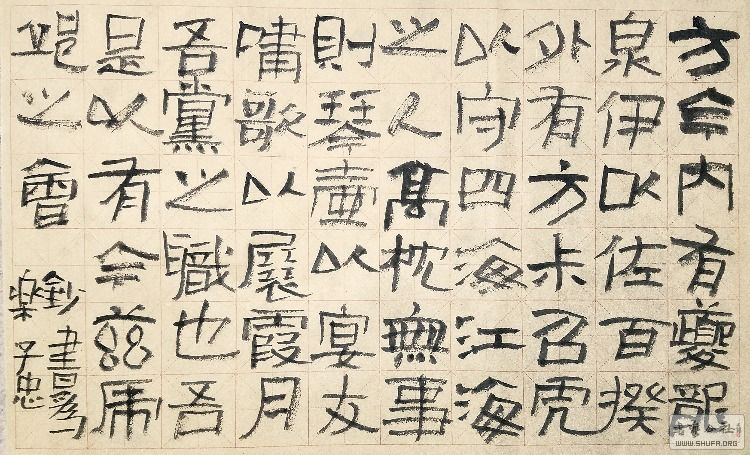 方今内有夔龍
泉伊以佐百揆
外有方尗召虎
以守四海江海
之人高枕無事
則琴壺以宴友
嘯歌以展霞月
吾黨之職也吾
是以有今茲席
之會
鈔書為
樂子忠
WWW.SHUFA.ORG